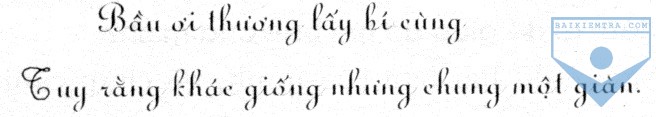 Bầu ơi thương lấy bí cùng
BAIKIEMTRA.COM
Tuy rằng khác giống nhưng chung một giàn.